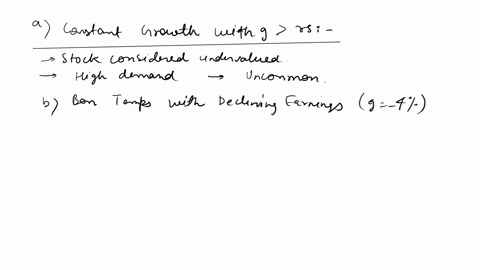 a) Constant Growth with g > rs :-
→ Stock considered undervalued
→ High demand → Uncommon.
b) Bon Temps with Declining Earnings (g = -4%)